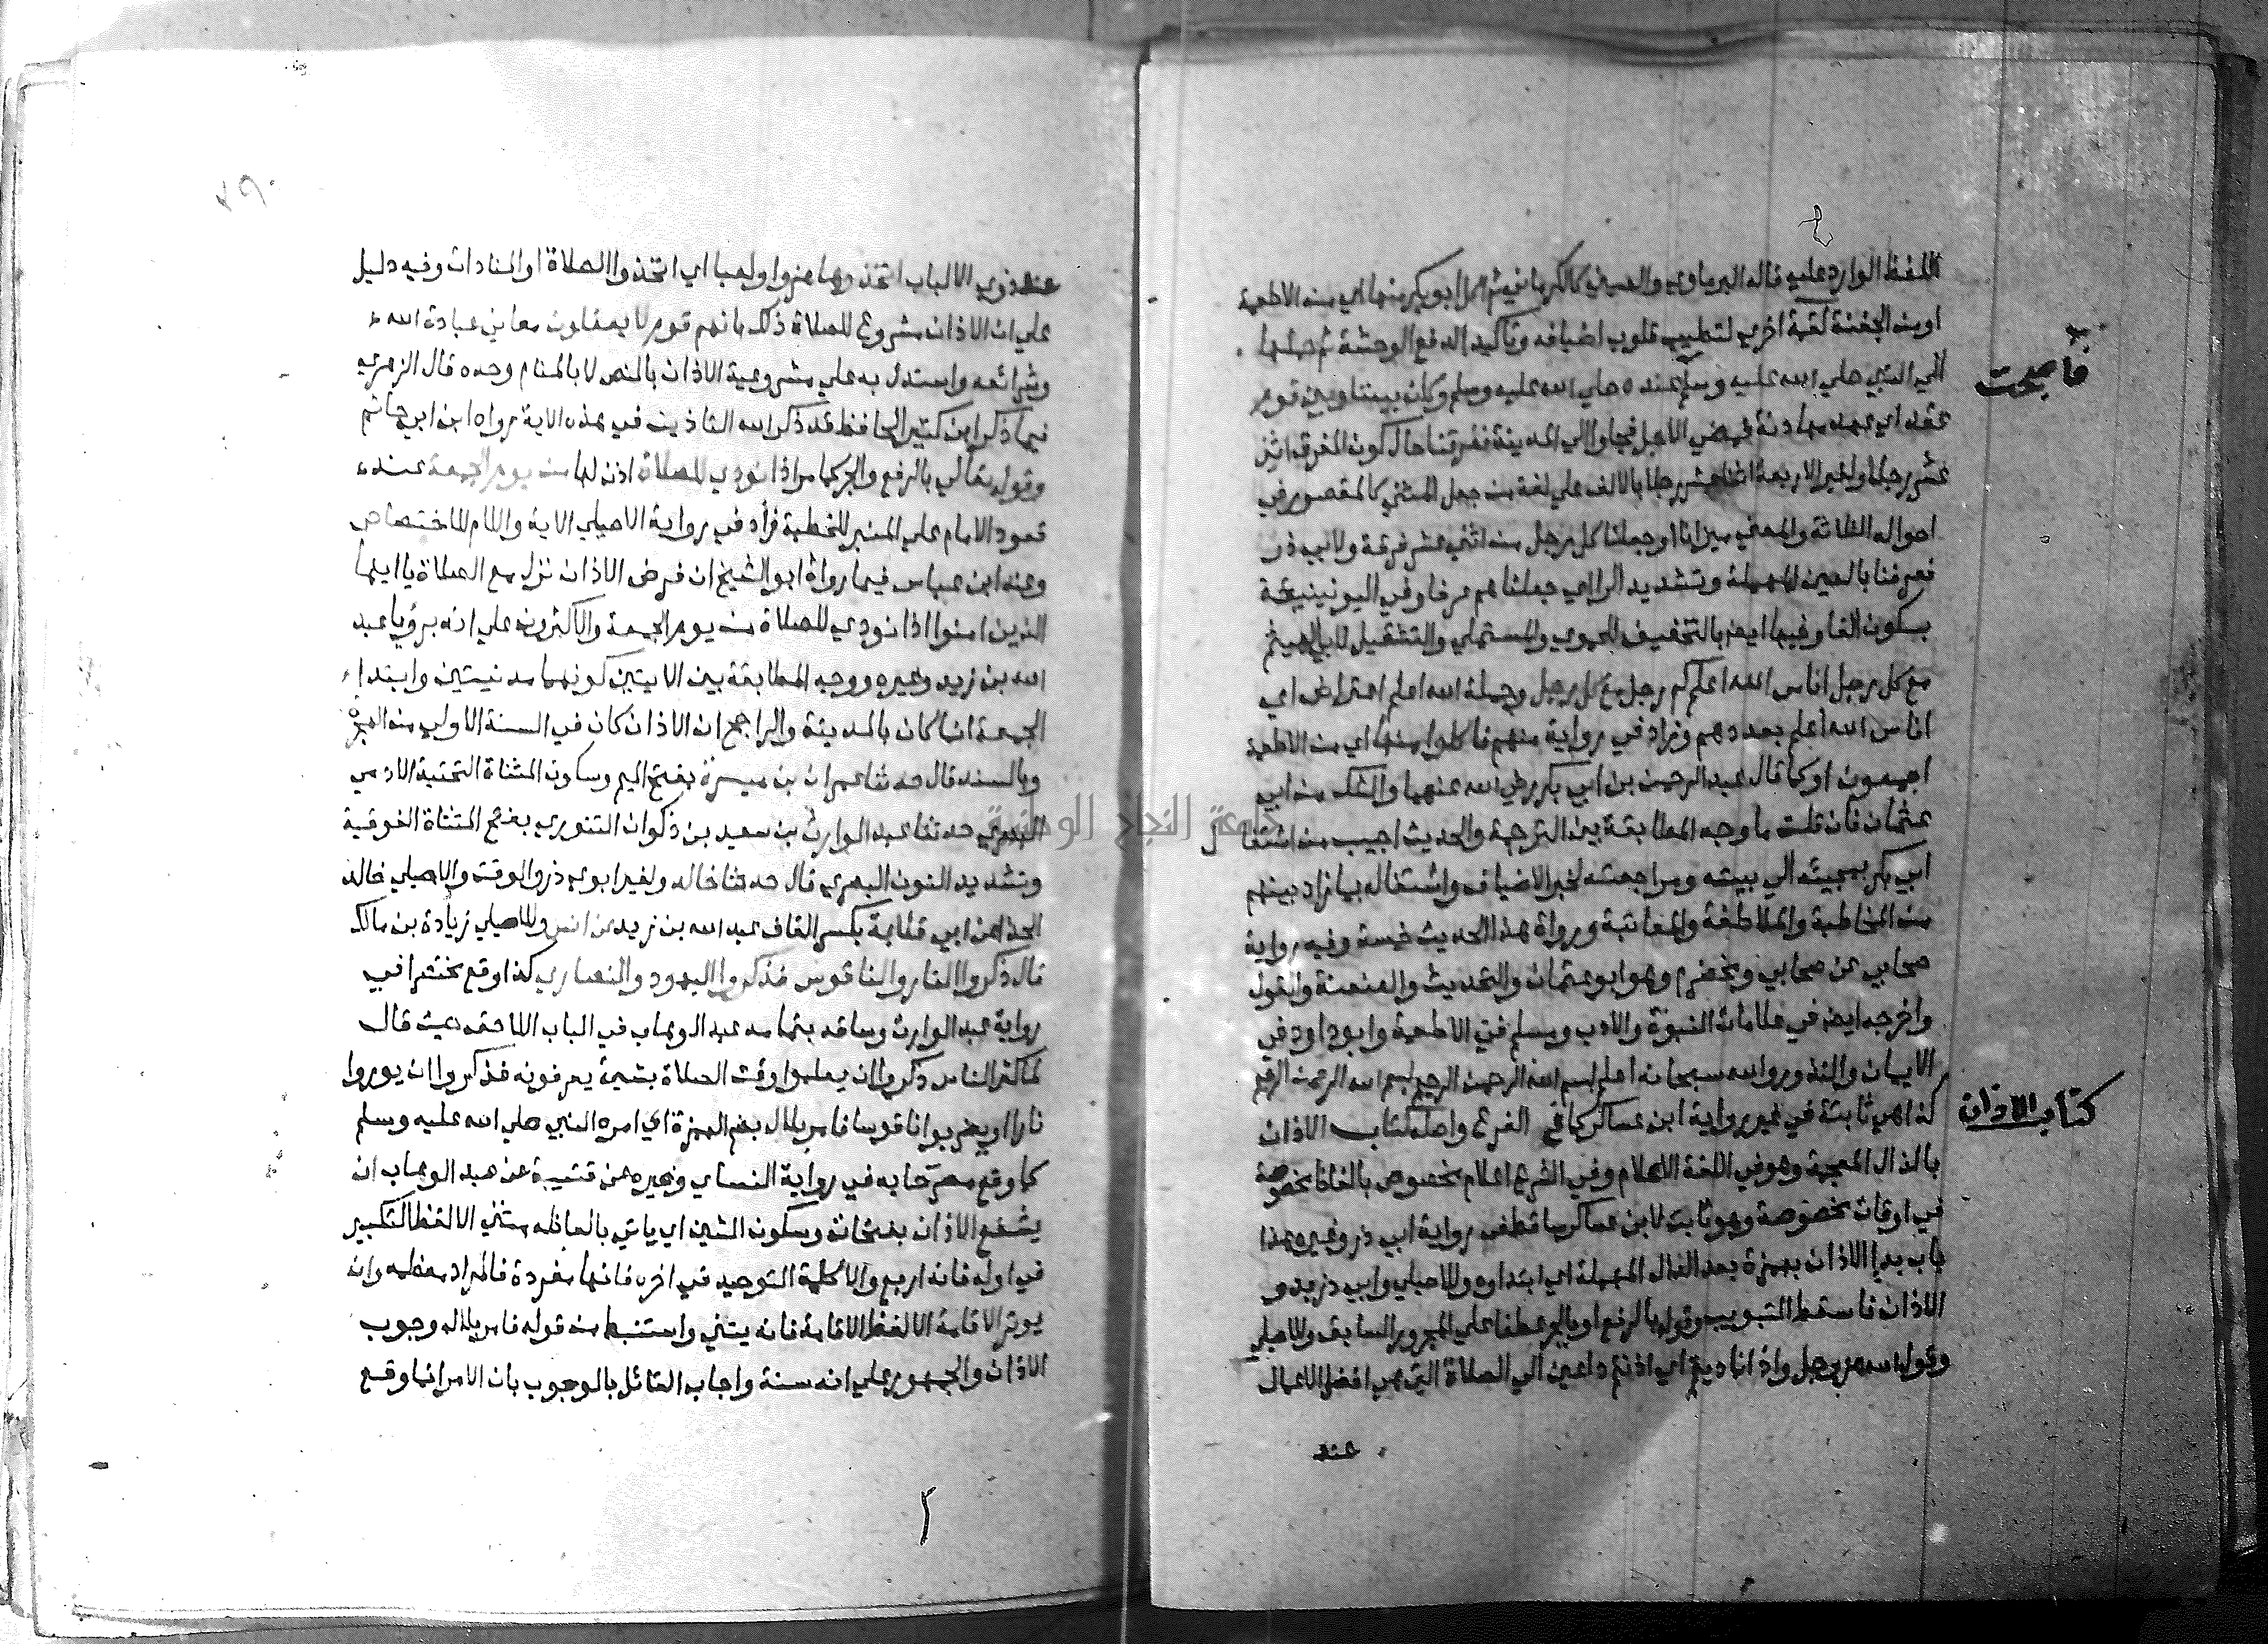 اللفظ الوارد عليه قاله البرماوي والعيني كالكرماني ثم حمل ابو بكر منها اي من الاطعمة
او من الجفنة لقمة اخري لتطييب قلوب اضيافه وتاكيد الدفع الوحشة ثم حملها
الي النبي صلي الله عليه وسلم عنده صلي الله عليه وسلم وكان بيننا وبين قوم
فاصبحت
عقد اي عهد مهادنة فمضي الاجل فجاوا الي المدينة ففرقنا حال كون المفرق اثني
عشر رجلا ولغير الاربعة اثنا عشر رجلا بالالف علي لغة من جعل المثني كالمقصور في
احواله الثلاثة والمعني ميزنا او جعلنا كل رجل من اثني عشر فرقة ولابي ذر
فعرفنا بالعين المهملة وتشديد الرا اي جعلناهم عرفا وفي اليونينية
بسكون الفا وفيها ايضا بالتخفيف للحموي والمستملي والتثقيل لابي الهيثم
مع كل رجل اناس الله اعلم كم رجل مع كل رجل وجملة الله اعلم اعتراض اي
اناس الله اعلم بعددهم وزاد في رواية منهم فاكلوا منها اي من الاطعمة
اجمعون او كما قال عبد الرحمن بن ابي بكر رضي الله عنهما والشك من ابي
عثمان فان قلت ما وجه المطابقة بين الترجمة والحديث اجيب من اشتغال
ابي بكر بمجيئه الي بيته ومراجعته لخبر الاضياف واشتغاله بما زاد بينهم
من المخاطبة والملاطفة والمعاتبة ورواة هذا الحديث خمسة وفيه رواية
صحابي عن صحابي ومخضرم وهو ابو عثمان والتحديث والعنعنة والقول
واخرجه ايضا في علامات النبوة والادب ومسلم في الاطعمة وابو داود في
الايمان والنذور والله سبحانه اعلم بسم الله الرحمن الرحيم بسم الله الرحمن الرحيم
كذا هي ثابتة في غير رواية ابن عساكر كما في الفرع واصله كتاب الاذان
كتاب الاذان
بالذال المعجمة وهو في اللغة الاعلام وفي الشرع اعلام مخصوص بالفاظ مخصوصة
في اوقات مخصوصة وهو ثابت لابن عساكر ساقط في رواية ابي ذر وغيره هذا
باب بدا الاذان بهمزة بعد الدال المهملة اي ابتداوه وللاصيلي وابي ذر بدو
الاذان فاسقط التبويب وقوله بالرفع او بالجر عطفا علي المجرور السابق وللاصيلي
وقول الله عز وجل واذا ناديتم اي اذنتم داعين الي الصلاة التي هي افضل الاعمال
عند
عند ذوي الالباب اتخذوها هزوا ولعبا اي اتخذوا الصلاة او المنادات وفيه دليل
علي ان الاذان مشروع للصلاة ذلك بانهم قوم لا يعقلون معاني عبادة الله
وشرائعه واستدل به علي مشروعية الاذان بالنص لا بالمنام وحده قال الزهري
فيما ذكر ابن كثير الحافظ قد ذكر الله التاذين في هذه الاية رواه ابن ابي حاتم
وقوله تعالي بالرفع والجر كما مر اذا نودي للصلاة اذن لها من يوم الجمعة عند
قعود الامام علي المنبر للخطبة زاد في رواية الاصيلي الاية واللام للاختصاص
وعند ابن عباس فيما رواه ابو الشيخ ان فرض الاذان نزل مع الصلاة يا ايها
الذين امنوا اذا نودي للصلاة من يوم الجمعة والاكثرون علي انه برويا عبد
الله بن زيد وغيره ووجه المطابقة بين الايتين كونهما مدنيتين وابتداء
الجمعة انما كان بالمدينة والراجح ان الاذان كان في السنة الاولي من الهجرة
وبالسند قال حدثنا عمران بن ميسرة بفتح الميم وسكون المثناة التحتية الادمي
البصري حدثنا عبد الوارث بن سعيد بن ذكوان التنوري بفتح المثناة الفوقية
وتشديد النون البصري قال حدثنا خالد ولغير ابوي ذر والوقت والاصيلي خالد
الحذا عن ابي قلابة بكسر القاف عبد الله بن زيد عن انس وللاصيلي زيادة بن مالك
قال ذكروا النار والناقوس فذكروا اليهود والنصاري كذا وقع مختصرا في
رواية عبد الوارث وساقه بتمامه عبد الوهاب في الباب اللاحق حيث قال
لما كثر الناس ذكروا ان يعلموا وقت الصلاة بشي يعرفونه فذكروا ان يوروا
نارا او يضربوا ناقوسا فامر بلال بضم الهمزة اي امره النبي صلي الله عليه وسلم
كما وقع مصرحا به في رواية النساي وغيره عن قتيبة عن عبد الوهاب ان
يشفع الاذان بفتحات وسكون الشين اي ياتي بالفاظه مثني الا لفظ التكبير
في اوله فانه اربع والا كلمة التوحيد في اخره فانها مفردة فالمراد معظمه وان
يوتر الاقامة الا لفظ الاقامة فانه يثني واستنبط من قوله فامر بلال وجوب
الاذان والجمهور علي انه سنة واجاب القائل بالوجوب بان الامر انما وقع
جامعة النجاح الوطنية